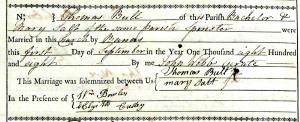 N° Thomas Bull of this Parish Bachelor &
Mary Salt of the same parish Spinster were
Married in this Church by Banns
this first Day of September in the Year One Thousand eight Hundred
and eight By me John Webb Curate
This Marriage was solemnized between Us Thomas Bull
mary Salt
In the Presence of Wm Bowler
Eliz th